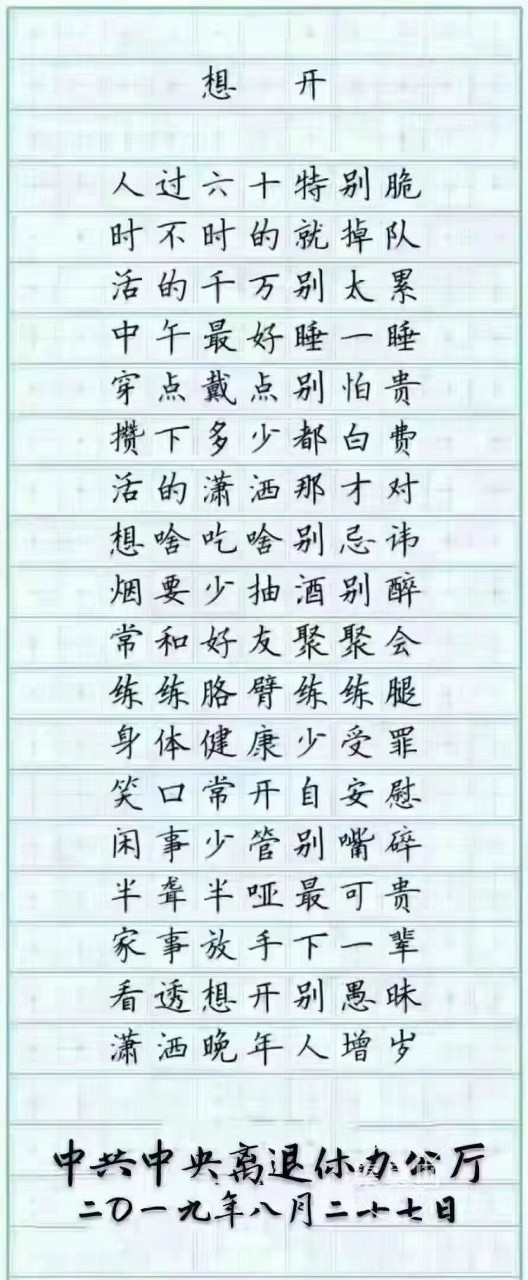 想开
人过六十特别脆
时不时的就掉队
活的千万别太累
中午最好睡一睡
穿点戴点别怕贵
攒下多少都白费
活的潇洒那才对
想啥吃啥别忌讳
烟要少抽酒别醉
常和好友聚聚会
练练胳臂练练腿
身体健康少受罪
笑口常开自安慰
闲事少管别嘴碎
半聋半哑最可贵
家事放手下一辈
看透想开别愚昧
潇洒晚年人增岁
中共中央离退休办公厅
二〇一九年八月二十七日